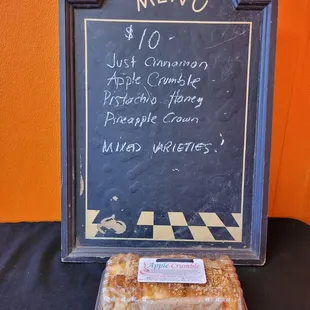 MENU
$10 -
Just Cinnamon
Apple Crumble
Pistachio Honey
Pineapple Crown
MIXED VARIETIES!
Apple Crumble